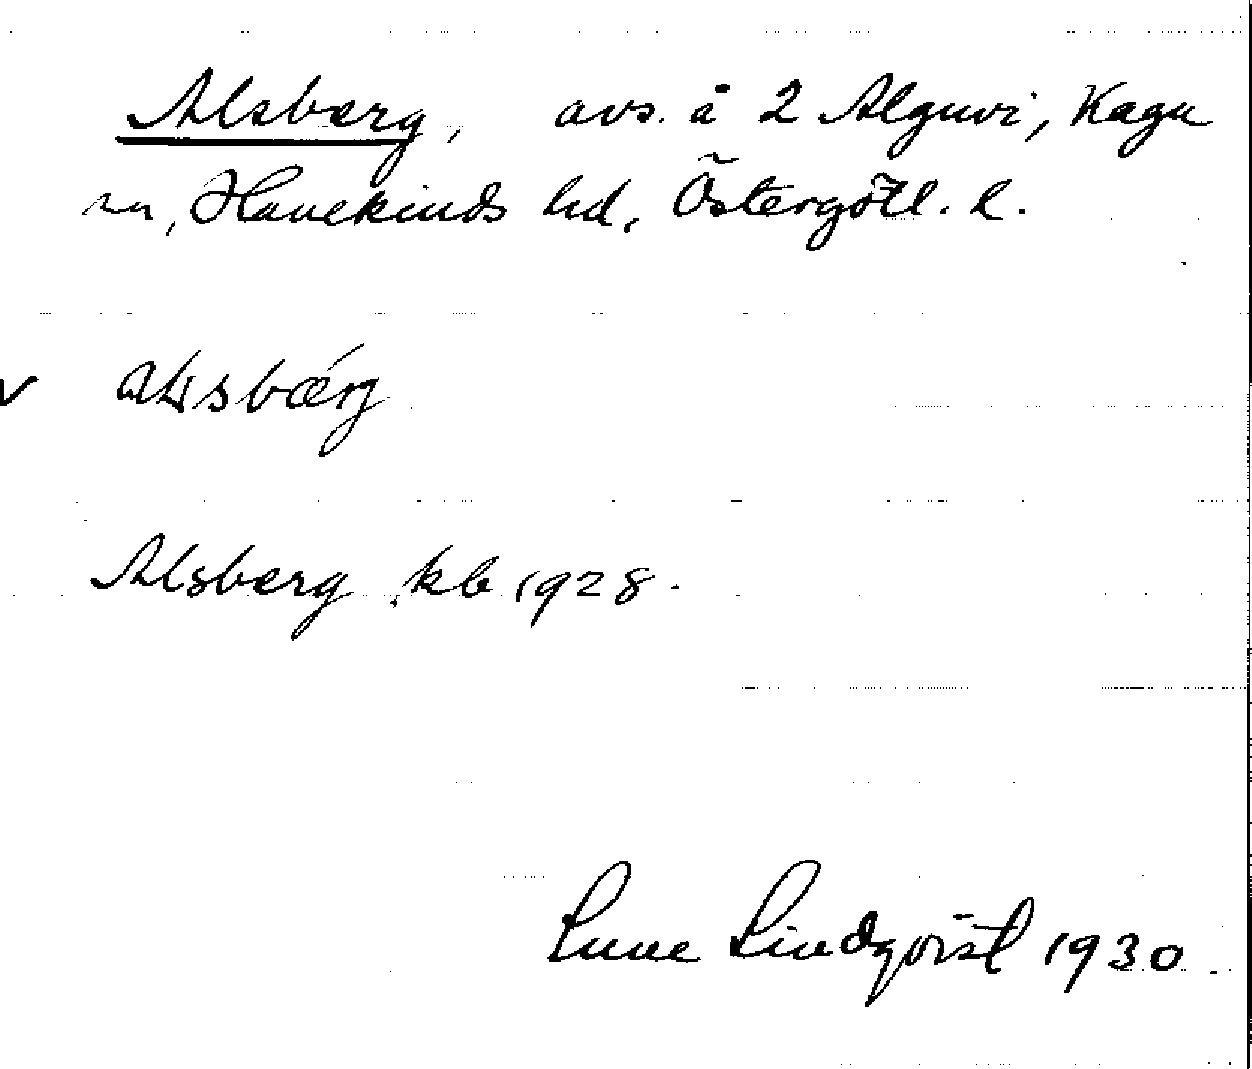 Alsberg, avs. å 2 Alguvi, Kaga
sn, Hanekinds hd, Östergötl. l.
Alsberg kb 1928.
Sune Lindqvist 1930